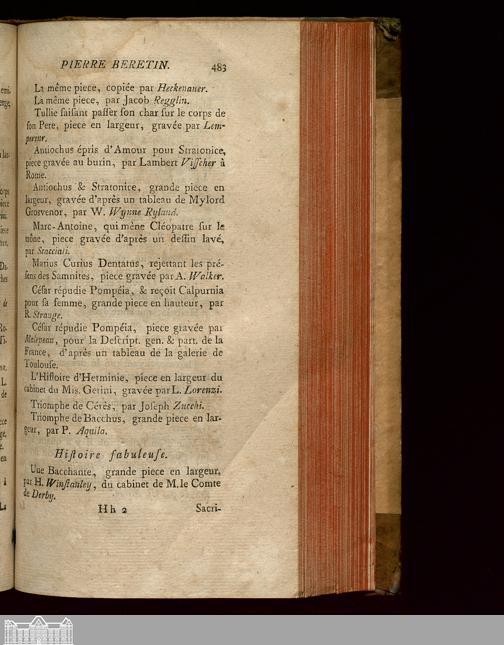 PIERRE BERETIN. 483
La même piece, copiée par Heckenauer.
La même piece, par Jacob Regglin.
Tullie faisant passer son char sur le corps de
son Pere, piece en largeur, gravée par Lem-
pereur.
Antiochus épris d'Amour pour Stratonice,
piece gravée au burin, par Lambert Visscher à
Rome.
Antiochus & Stratonice, grande piece en
largeur, gravée d'après un tableau de Mylord
Grosvenor, par W. Wynne Ryland.
Marc-Antoine, qui méne Cléopatre sur le
trône, piece gravée d'après un dessin lavé,
par Scacciati.
Marius Curius Dentatus, rejettant les pré-
sens des Samnites, piece gravée par A. Walker.
César répudie Pompéia, & reçoit Calpurnia
pour sa femme, grande piece en hauteur, par
R. Strange.
César répudie Pompéia, piece gravée par
Malepeau, pour la Descript. gen. & part. de la
France, d'après un tableau de la galerie de
Toulouse.
L'Histoire d'Herminie, piece en largeur du
cabinet du Mis. Gerini, gravée par L. Lorenzi.
Triomphe de Cérès, par Joseph Zucchi.
Triomphe de Bacchus, grande piece en lar-
geur, par P. Aquila.
Histoire fabuleuse.
Une Bacchante, grande piece en largeur,
par H. Winstanley, du cabinet de M. le Comte
de Derby.
Hh 2 Sacri-